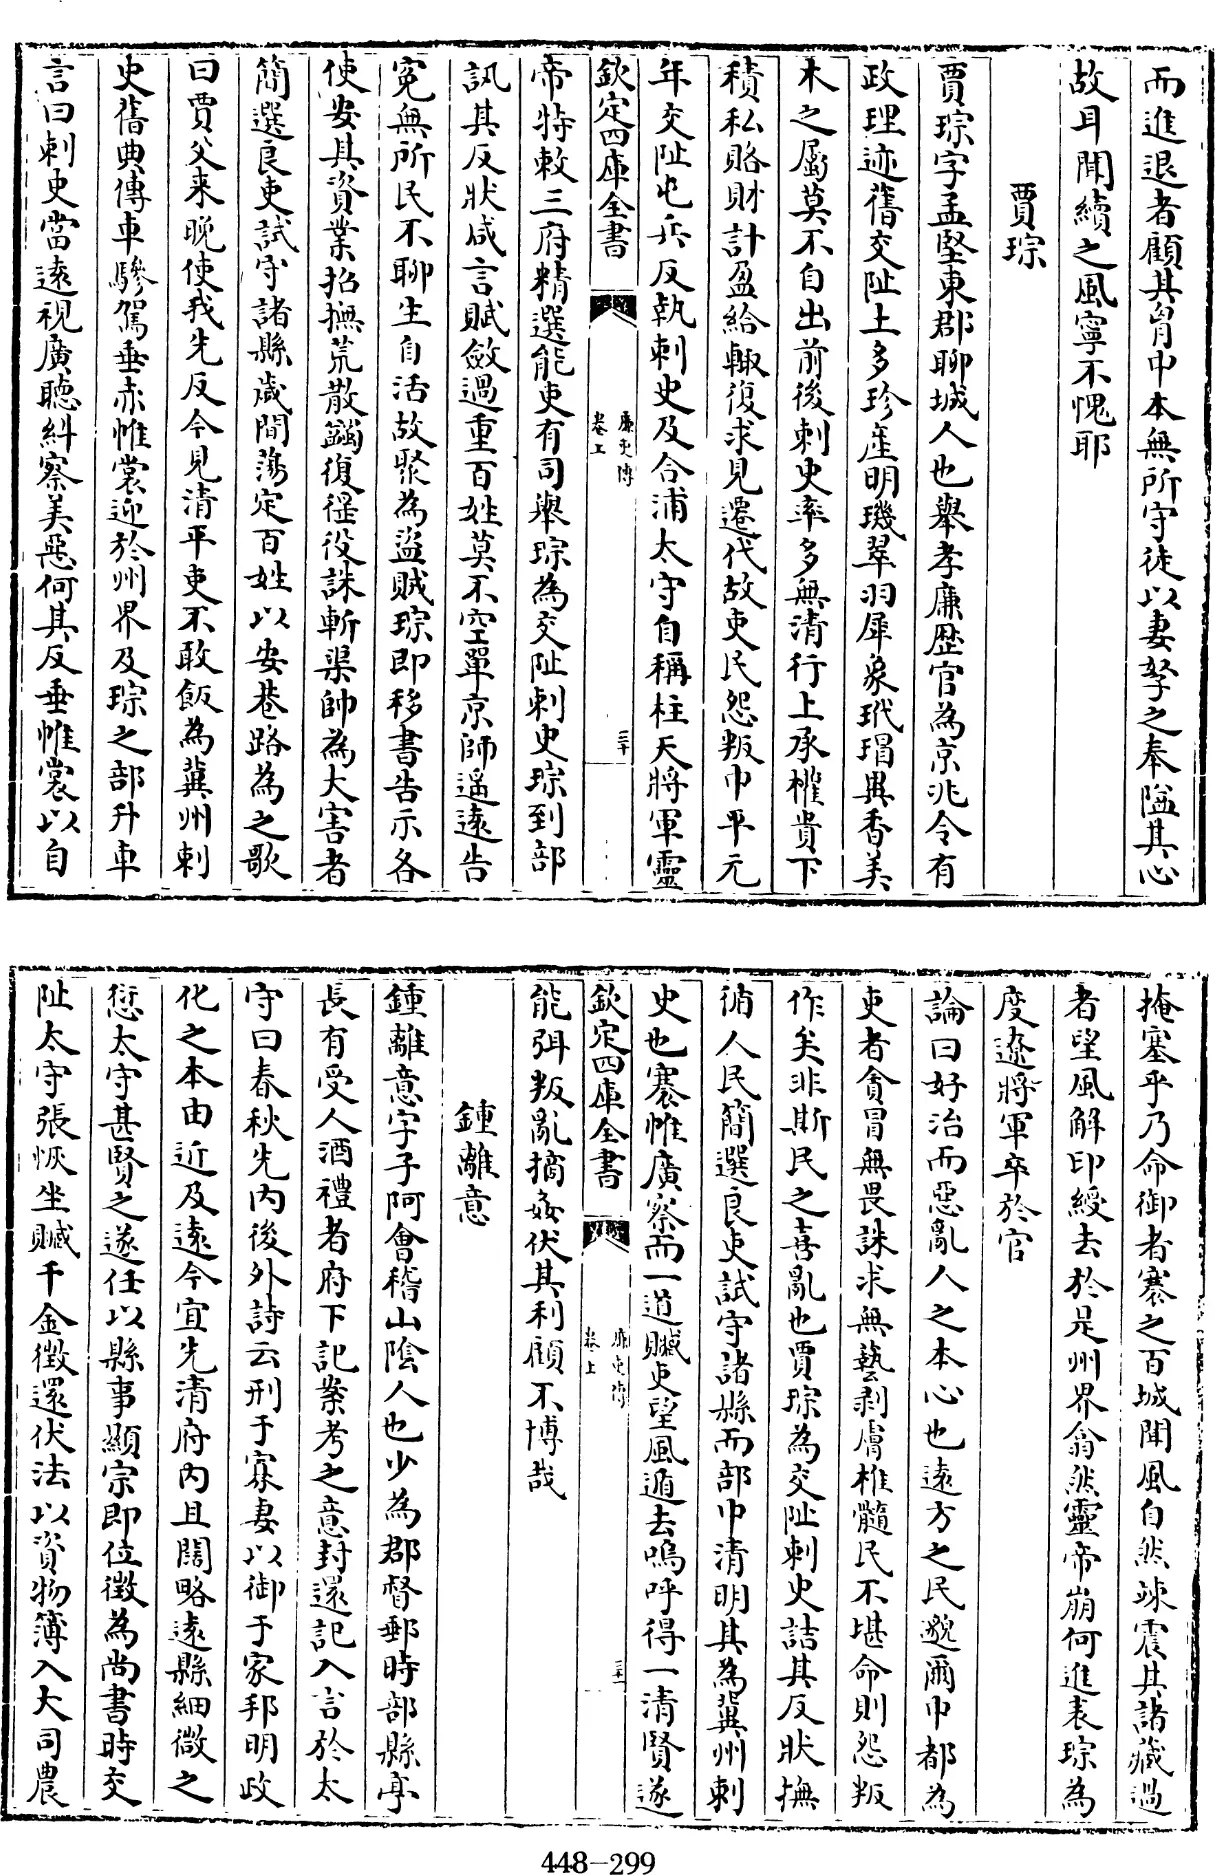 而進退者顧其胷中本無所守徒以妻孥之奉隘其心
故耳聞續之風寧不愧耶
賈琮
賈琮字孟堅東郡聊城人也舉孝廉歴官為京兆令有
政理迹舊交阯土多珍産明璣翠羽犀象玳瑁異香美
木之屬莫不自出前後刺史率多無清行上承權貴下
積私賂財計盈給輙復求見遷代故吏民怨叛中平元
年交阯屯兵反執刺史及合浦太守自稱柱天將軍靈
欽定四庫全書
廉吏傳
卷上
三十
帝特敕三府精選能吏有司舉琮為交阯刺史琮到部
訊其反狀咸言賦斂過重百姓莫不空單京師遥遠告
寃無所民不聊生自活故聚為盜賊琮即移書告示各
使安其資業招撫荒散蠲復徭役誅斬渠帥為大害者
簡選良吏試守諸縣歲間蕩定百姓以安巷路為之歌
曰賈父来晚使我先反今見清平吏不敢飯為冀州刺
史舊典傳車驂駕垂赤帷裳迎於州界及琮之部升車
言曰刺史當遠視廣聽糾察美惡何其反垂帷裳以自
掩塞乎乃命御者褰之百城聞風自然竦震其諸藏過
者望風解印綬去於是州界翕然靈帝崩何進表琮為
度遼將軍卒於官
論曰好治而惡亂人之本心也遠方之民邈爾中都為
吏者貪冒無畏誅求無藝剥膚椎髓民不堪命則怨叛
作矣非斯民之喜亂也賈琮為交阯刺史詰其反狀撫
循人民簡選良吏試守諸縣而部中清明其為冀州刺
史也褰帷廣察而一道贓吏望風遁去嗚呼得一清賢遂
欽定四庫全書
廉吏傳
卷上
三十一
能弭叛亂摘姦伏其利顧不博哉
鍾離意
鍾離意字子阿會稽山陰人也少為郡督郵時部縣亭
長有受人酒禮者府下記案考之意封還記入言於太
守曰春秋先内後外詩云刑于寡妻以御于家邦明政
化之本由近及遠今宜先清府内且闊略遠縣細微之
愆太守甚賢之遂任以縣事顯宗即位徵為尚書時交
阯太守張恢坐贓千金徵還伏法以資物簿入大司農
448-299